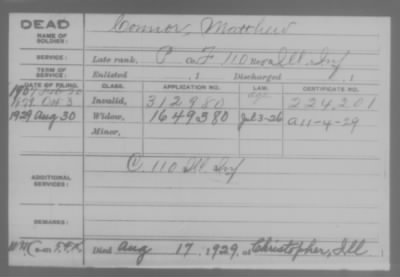 DEAD
NAME OF SOLDIER: Connor, Matthew
SERVICE: Late rank, P Co. F 110 Reg Ill Inf
TERM OF SERVICE: Enlisted , 1 Discharged , 1
DATE OF FILING. CLASS. APPLICATION NO. LAW. CERTIFICATE NO.
Oct 3 Invalid, 312980 age 224,201
1929 Aug 30 Widow, 1649380 Jul 3-26 a11-4-29
Minor,
ADDITIONAL SERVICES: C. 110 Ill Inf
REMARKS:
Died Aug 17, 1929, at Christopher, Ill.